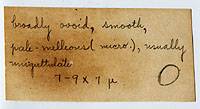 broadly ovoid, smooth,
pale-melleous (micro.), usually
uniguttulate
7-9 x 7 μ